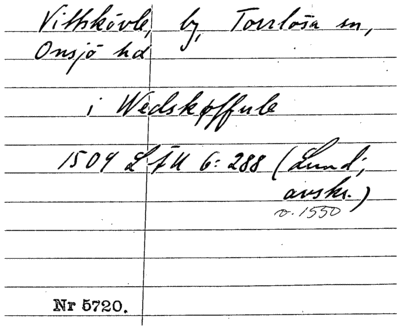 Vittskövle, by, Torrlösa sn,
Onsjö hd
i Wedskøffule
1509 LÄU 6: 288 (Lund;
avskr.)
o. 1550
Nr 5720.